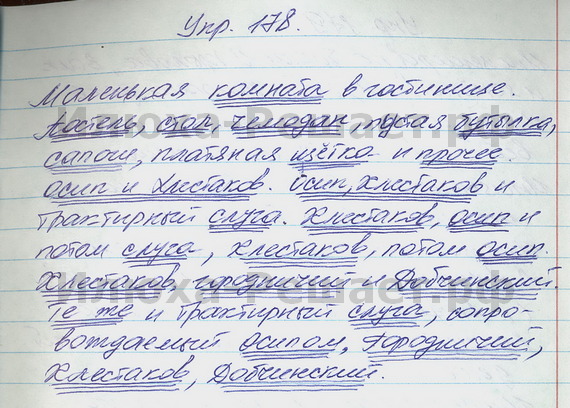 Упр. 178.
Маленькая комната в гостинице.
Постель, стол, чемодан, пустая бутылка,
сапоги, платяная щётка и прочее.
Осип и Хлестаков. Осип, Хлестаков и
трактирный слуга. Хлестаков, осип и
потом слуга, Хлестаков, потом осип.
Хлестаков, городничий и Добчинский.
Те же и трактирный слуга, сопро-
вождаемый Осипом, Городничий,
Хлестаков, Добчинский.
Илюха-Решает.рф
Илюха-Решает.рф